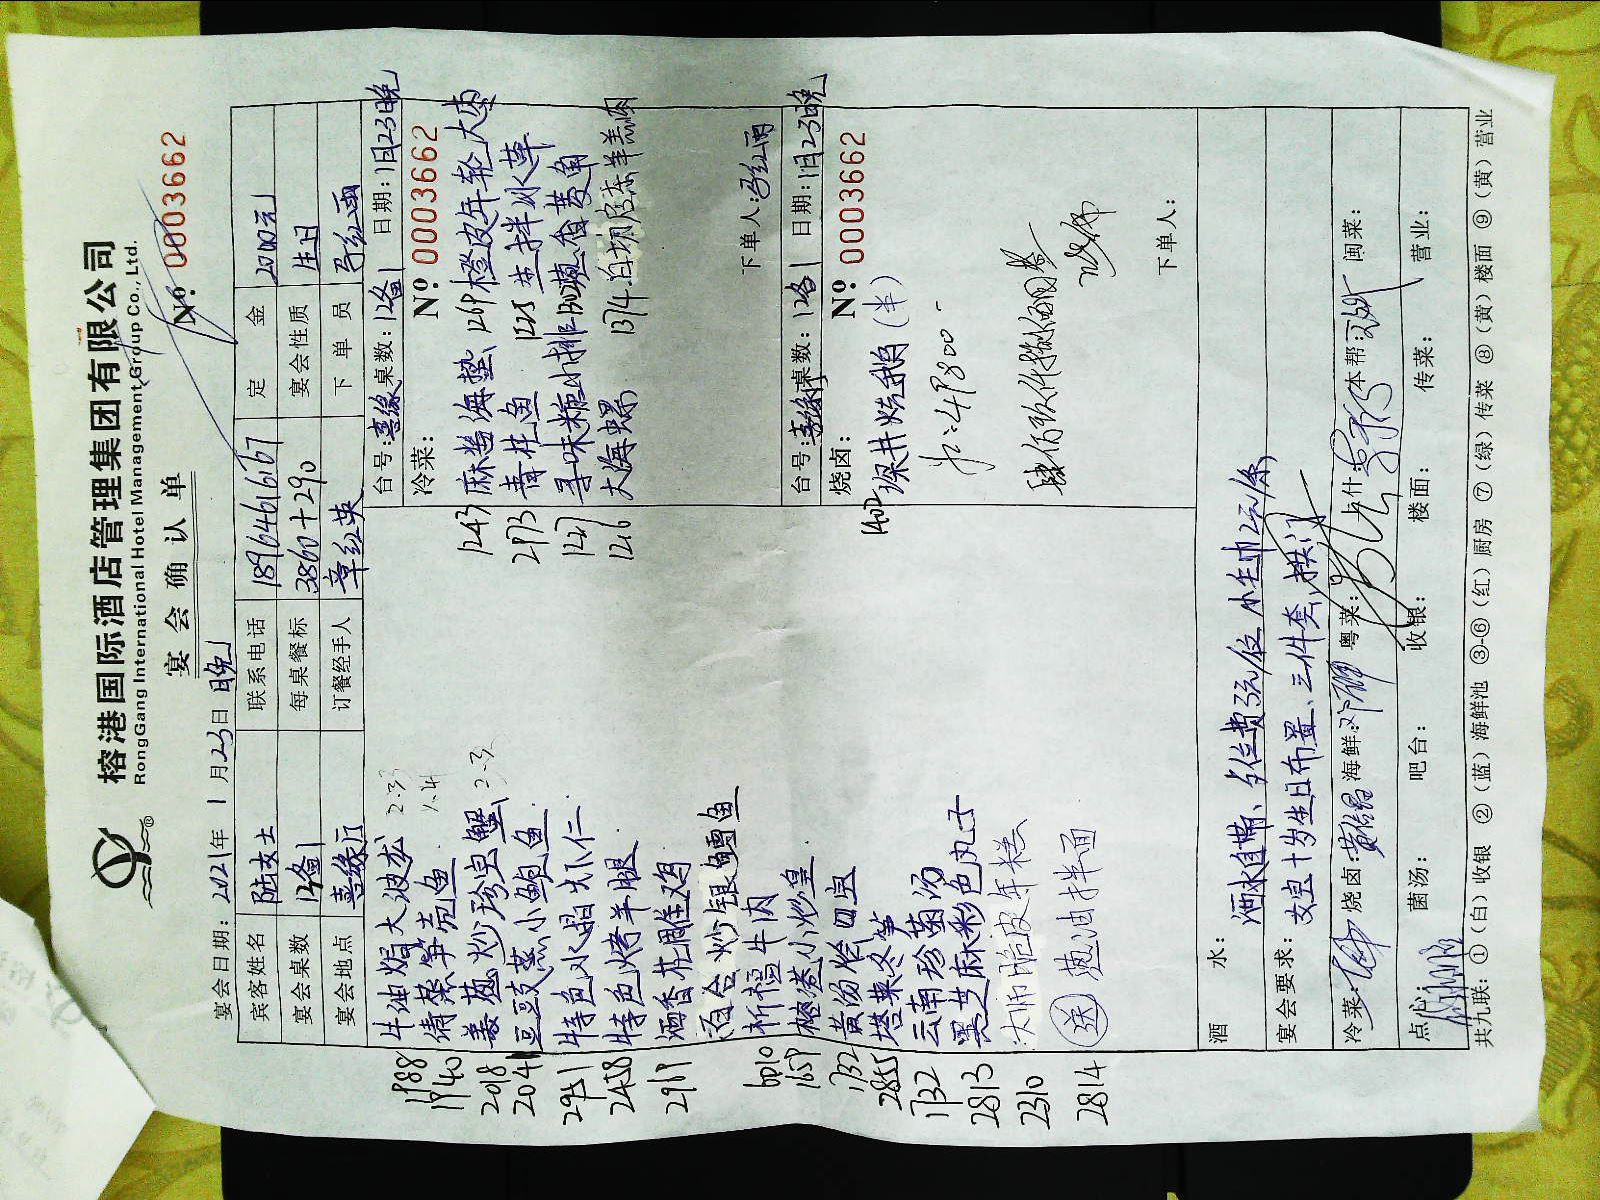 榕港国际酒店管理集团有限公司
RongGang International Hotel Management Group Co., Ltd.
宴会确认单
Nº 0003662
宴会日期：2021年1月23日 晚
宾客姓名 陆女士 联系电话 18964616167 定金 2000元
宴会桌数 12备1 每桌餐标 3860+290 宴会性质 生日
宴会地点 喜缘厅 订餐经手人 章红英 下单员
1988 牛油焗大波龙 2.3
1940 清蒸笋壳鱼 1.4
2018 姜葱炒珍宝蟹 2.3
204 豆豉蒸小鲍鱼
2951 特色水晶虾仁
2458 特色烤羊腿
2919 酒香花雕鸡
百合炒银鳕鱼
6010 杭椒牛肉
1659 榕港小炒皇
1132 黄汤烩四宝
2855 塔菜冬笋
1132 云南珍菌汤
2813 黑芝麻彩色丸子
2310 大师脆皮年糕
2814 送 葱油拌面
台号：喜缘 桌数：12备1 日期：1月23晚
冷菜： Nº 0003662
1243 麻酱海蜇 1269 橙皮年轮大肉
2973 青柱鱼 1225 生拌冰草
1227 寻味糖小排
1216 大海螺 1374 白切店东羊羔肉
下单人：
台号： 桌数：12备1 日期：1月23晚
烧卤： Nº 0003662
1402 深井烧鹅（半）
下单人：
酒水： 酒水自带、餐位费3元/位 小毛巾2元/条
宴会要求： 女宝十岁生日布置、三件套、拱门
冷菜： 烧卤： 海鲜： 粤菜： 什 本帮： 闽菜：
点心： 菌汤： 吧台： 收银： 楼面： 传菜： 营业：
共九联：①（白）收银 ②（蓝）海鲜池 ③-⑥（红）厨房 ⑦（绿）传菜 ⑧（黄）楼面 ⑨（黄）营业